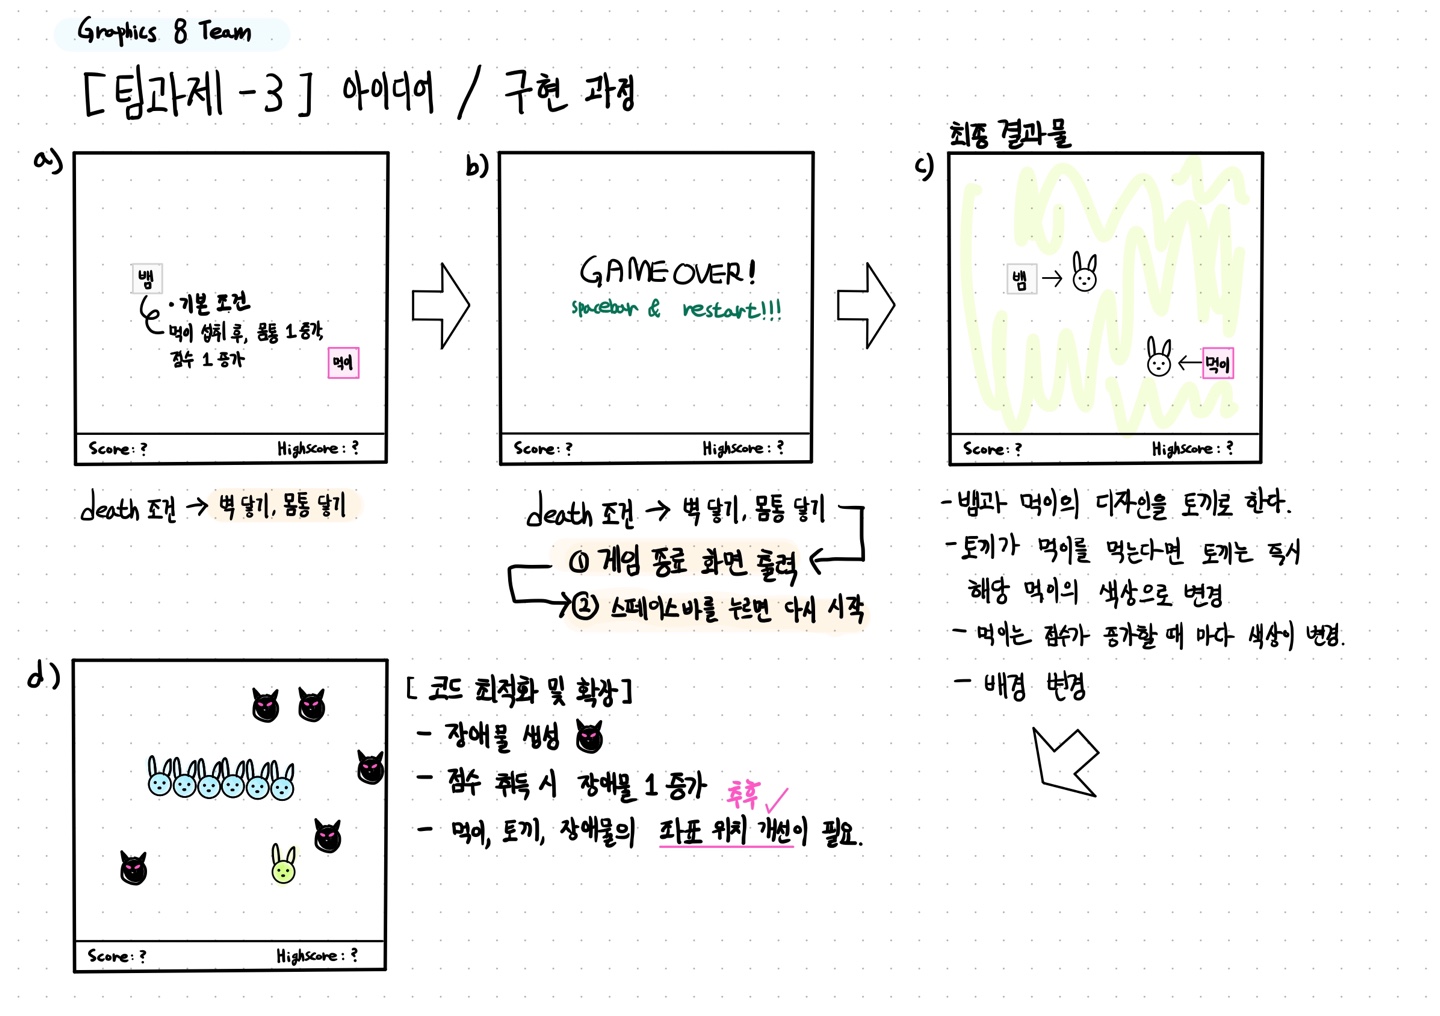 Graphics 8 Team
[팀과제 -3] 아이디어 / 구현 과정
a)
뱀
· 기본 조건
먹이 섭취 후, 몸통 1 증가,
점수 1 증가
먹이
Score: ?
Highscore: ?
death 조건 → 벽 닿기, 몸통 닿기
b)
GAME OVER!
spacebar & restart!!!
Score: ?
Highscore: ?
death 조건 → 벽 닿기, 몸통 닿기
① 게임 종료 화면 출력
② 스페이스바를 누르면 다시 시작
최종 결과물
c)
뱀 →
← 먹이
Score: ?
Highscore: ?
- 뱀과 먹이의 디자인을 토끼로 한다.
- 토끼가 먹이를 먹는다면 토끼는 즉시
해당 먹이의 색상으로 변경
- 먹이는 점수가 증가할 때 마다 색상이 변경.
- 배경 변경
d)
Score: ?
Highscore: ?
[ 코드 최적화 및 확장 ]
- 장애물 생성
- 점수 취득 시 장애물 1 증가
추후 ✓
- 먹이, 토끼, 장애물의 좌표 위치 개선이 필요.